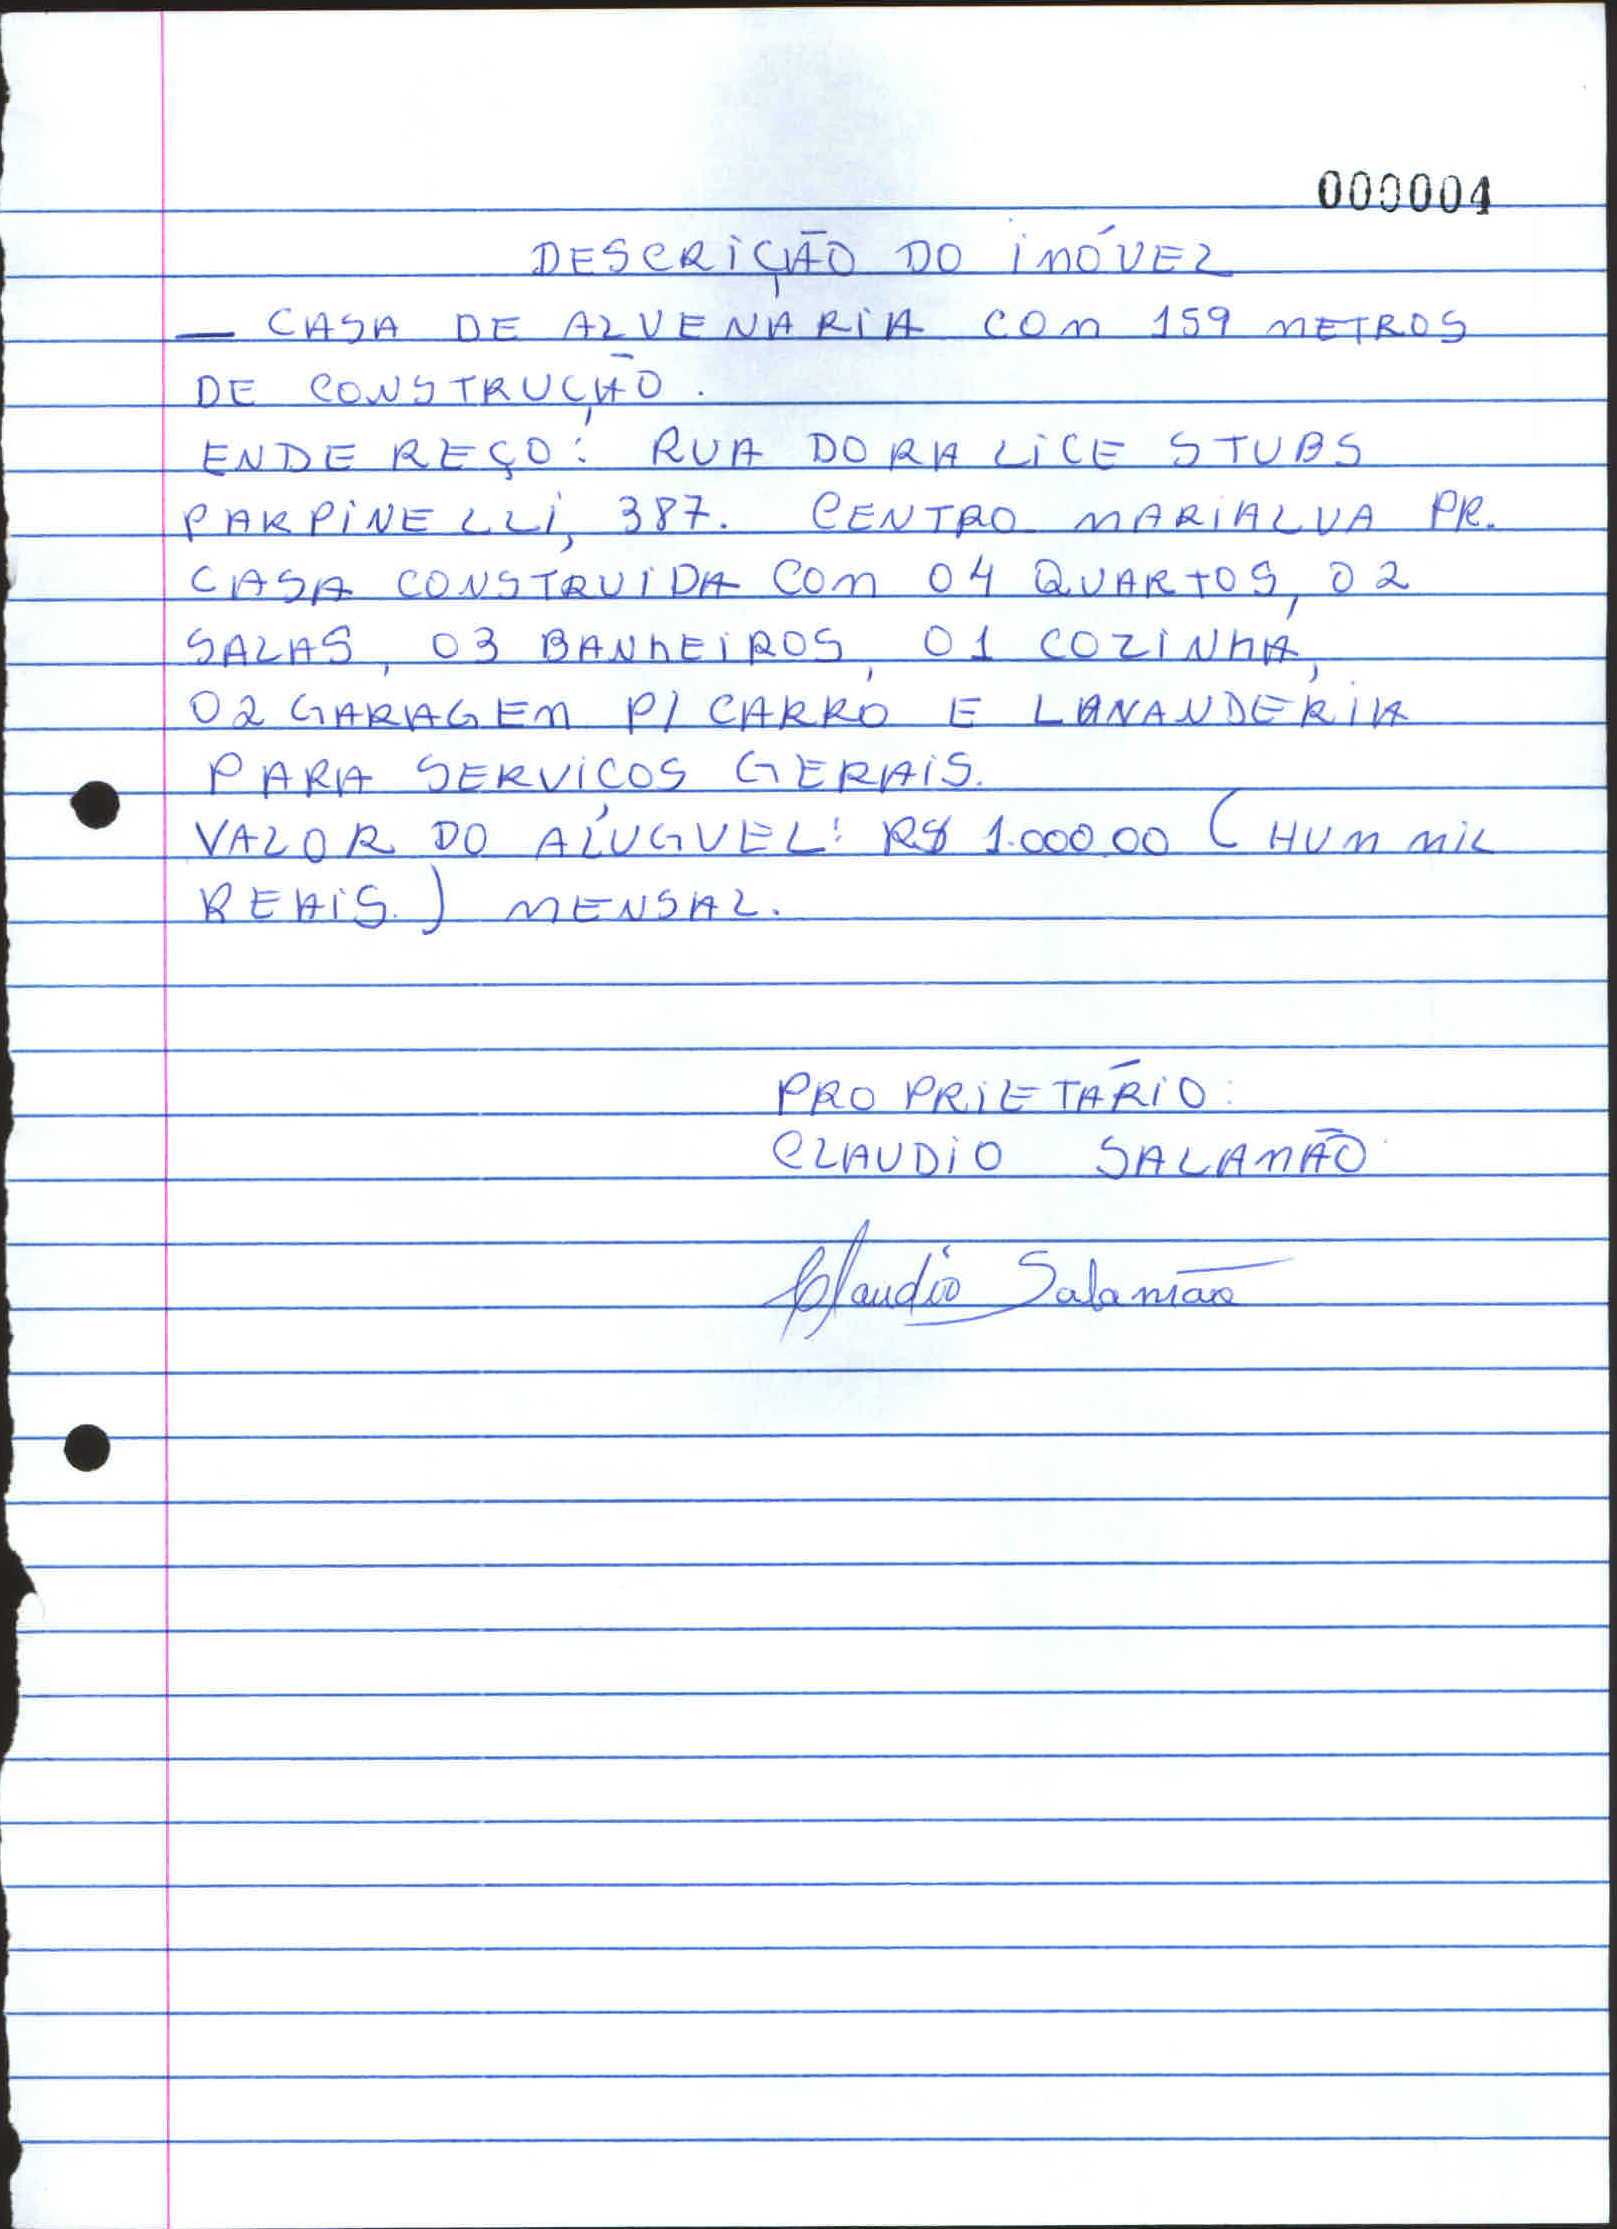 000004
DESCRIÇÃO DO IMÓVEL
— CASA DE ALVENARIA COM 159 METROS
DE CONSTRUÇÃO.
ENDEREÇO: RUA DORALICE STUBS
PARPINELLI, 387. CENTRO MARIALVA PR.
CASA CONSTRUIDA COM 04 QUARTOS, 02
SALAS, 03 BANHEIROS, 01 COZINHA,
02 GARAGEM P/ CARRO E LANANDERIA
PARA SERVIÇOS GERAIS.
VALOR DO ALUGUEL: R$ 1.000,00 (HUM MIL
REAIS.) MENSAL.
PROPRIETÁRIO:
CLAUDIO SALAMÃO
Claudio Salamão